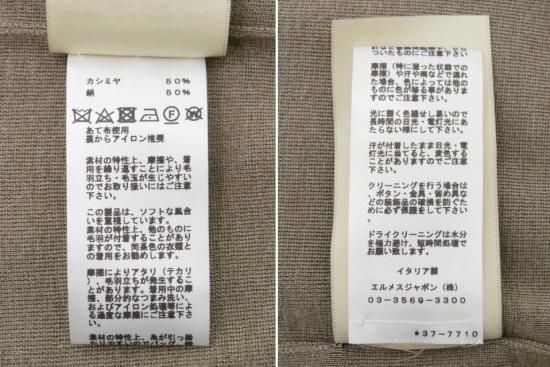 カシミヤ 50%
絹 50%
あて布使用
裏からアイロン推奨
素材の特性上、摩擦や、着
用を繰り返すことにより毛
羽立ち・毛玉が生じやすい
のでお取り扱いにはご注意
下さい。
この製品は、ソフトな風合
いを重視しています。
素材の特性上、他のものに
毛羽が付着することがあり
ますので、同系色の衣類と
の着用をお勧めします。
摩擦によりアタリ(テカリ
)、毛羽立ちが発生するこ
とがあります。着用中の摩
擦、部分的なつまみ洗い、
およびアイロン処理等によ
る過度な摩擦にご注意下さ
い。
素材の特性上、糸が引っ掛
ついたものにご注意下さい
摩擦(特に湿った状態での
摩擦)や汗や雨などで濡れ
た場合、色によっては他の
ものに色が移る事がありま
すのでご注意下さい。
光に弱く色褪せし易いので
長時間の日光・電灯光にあ
たらない様にして下さい。
汗が付着したまま日光・電
灯光に当てると、変色する
ことがありますのでご注意
下さい。
クリーニングを行う場合は
、ボタン・金具・留め具な
どの装飾品の破損を防ぐた
めに必ず保護をして下さい
。
ドライクリーニングは水分
を極力避け、短時間処理で
お願い致します。
イタリア製
エルメスジャポン(株)
03-3569-3300
*37-7710